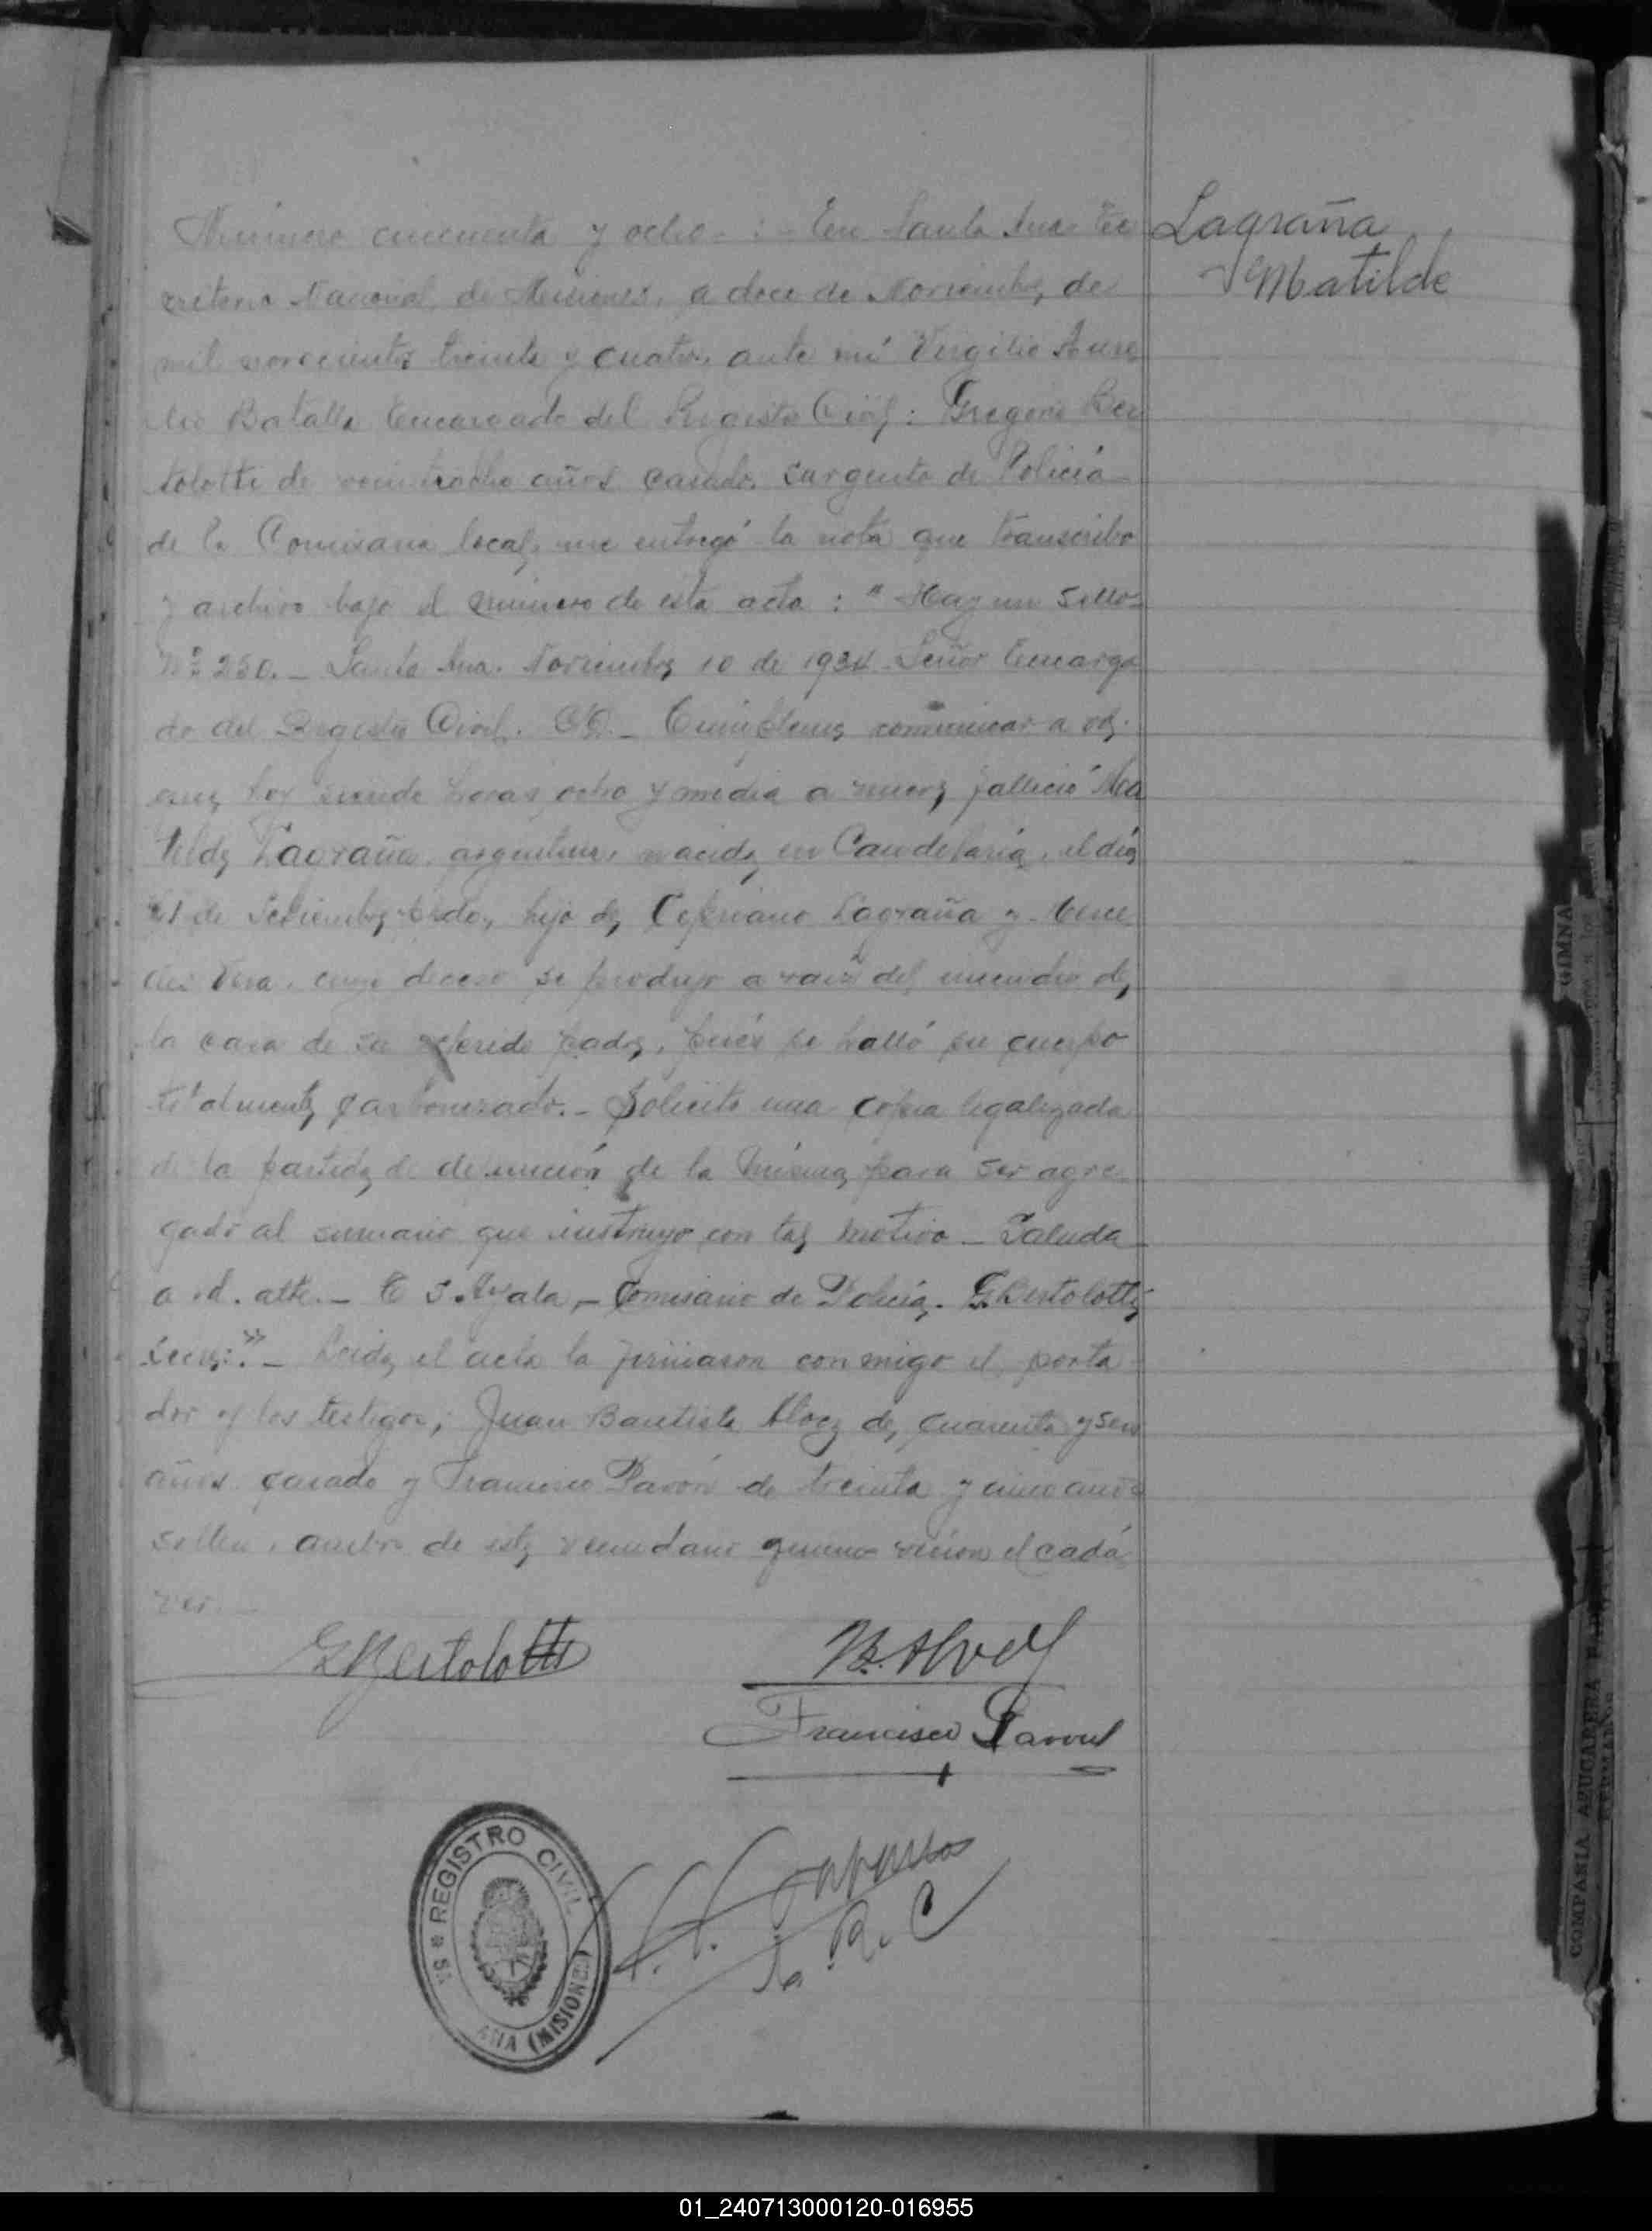 Número cincuenta y ocho - : - En Santa Ana Te
rritorio Nacional de Misiones, a doce de Noviembre de
mil novecientos treinta y cuatro, ante mí Virgilio Aure
lio Batalla Encargado del Registro Civil : Gregorio Ber
tolotti de veintiocho años casado, sargento de Policía
de la Comisaria local, me entregó la nota que transcribo
y archivo bajo el número de esta acta : " Hay un sello -
Nº 250. - Santa Ana. Noviembre 10 de 1934. Señor Encarga
do del Registro Civil. - comunicar a Vd.
que hoy siendo horas ocho y media a nueve falleció Ma
tilde Lagraña, argentina, nacida en Candelaria, el día
21 de Setiembre hija de Cipriano Lagraña y
Vera, cuyo deceso se produjo a raiz del incendio de
la casa de su referido padre, pués se halló su cuerpo
totalmente carbonizado. - Solicito una copia legalizada
de la partida de defunción de la misma para ser agre
gado al sumario que instruyo con tal motivo - Saluda
a Vd. atte. - E S. Ayala, - Comisario de Policía. G. Bertolotti
" - Leida el acta la firmaron conmigo el porta
dor y los testigos; Juan Bautista de cuarenta y seis
años casado y Francisco Pavón de treinta y cinco años
soltero, ambos de este vecindario quienes vieron el cadá
ver. -
Lagraña
Matilde
G. Bertolotti
Francisco Pavon
REGISTRO CIVIL
ANA (MISIONES)
GIMNA
COMPAÑIA AZUCARERA
01_240713000120-016955